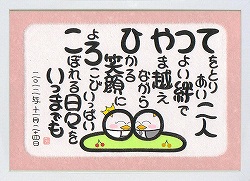 てをとりあい二人
つよい絆で
やま越え
ながら
ひかる
笑顔に
よろこびいっぱい
こぼれる日々を
いつまでも
二〇一二年十一月二十四日